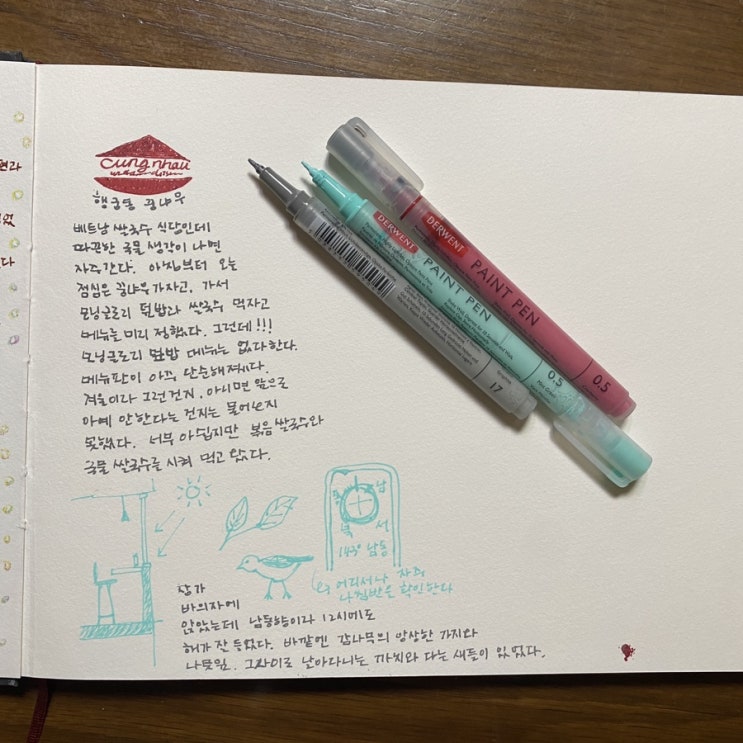 현라
었
다
cung nhau
행궁동 꿍냐우
베트남 쌀국수 식당인데
따끈한 국물 생각이 나면
자주간다. 아침부터 오늘
점심은 꿍냐우가자고, 가서
모닝글로리 덮밥과 쌀국수 먹자고
메뉴를 미리 정했다. 그런데!!!
모닝글로리 덮밥 메뉴는 없다한다.
메뉴판이 아주 단순해졌다.
겨울이라 그런건지, 아니면 앞으로
아예 안한다는 건지는 물어보지
못했다. 너무 아쉽지만 볶음쌀국수와
국물 쌀국수를 시켜 먹고 왔다.
동 남
북 서
143° 남동
어디서나 자주
나침반을 확인한다
창가
바의자에
앉았는데 남동향이라 12시에도
해가 잘 들었다. 바깥엔 감나무의 앙상한 가지와
나뭇잎. 그사이로 날아다니는 까치와 다른 새들이 있었다.
DERWENT
PAINT PEN
0.5
DERWENT
PAINT PEN
0.5
17